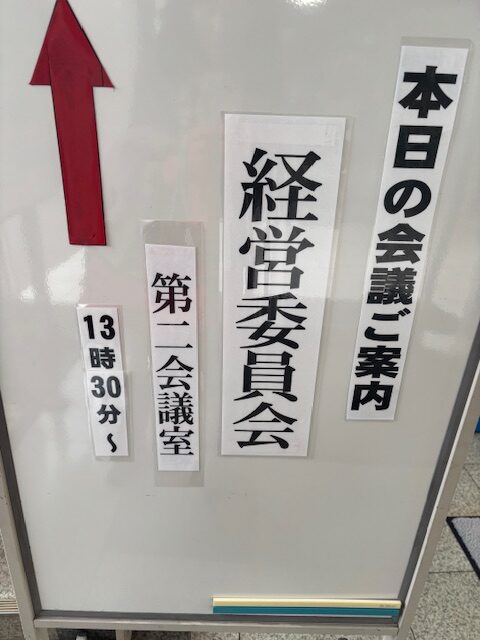 本日の会議ご案内
経営委員会
第二会議室
13時30分～